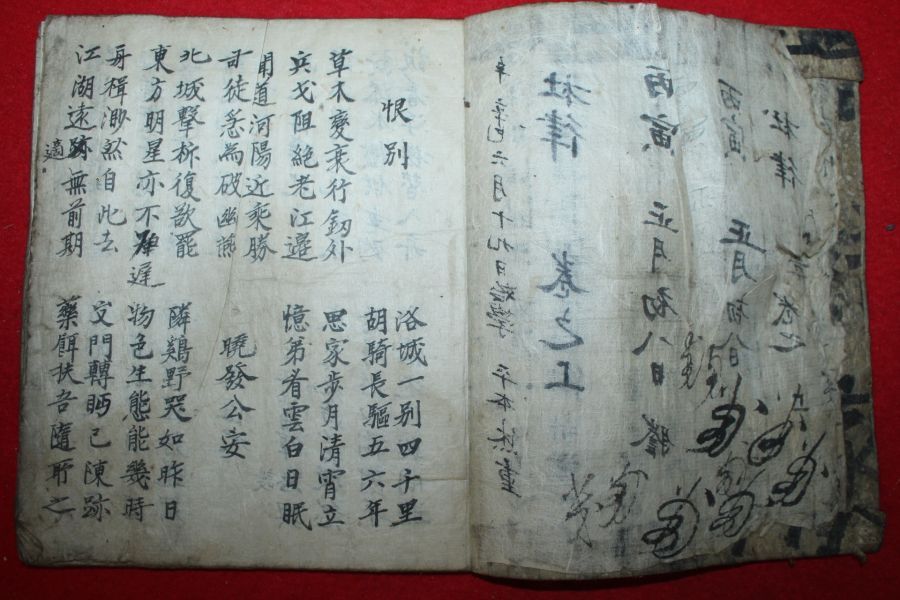 杜律 卷之
丙寅 正月初八日
丙寅 正月初八日 謄
杜律 卷之工
六月十九日
恨別
洛城一別四千里
胡騎長驅五六年
草木變衰行釼外
兵戈阻絶老江邊
思家步月清宵立
憶弟看雲白日眠
聞道河陽近乘勝
司徒急為破幽燕
曉發公安
北城擊柝復欲罷
東方明星亦不遲
隣鷄野哭如昨日
物色生態能幾時
舟楫渺然自此去
江湖遠適無前期
出門轉眄已陳跡
藥餌扶吾隨所之